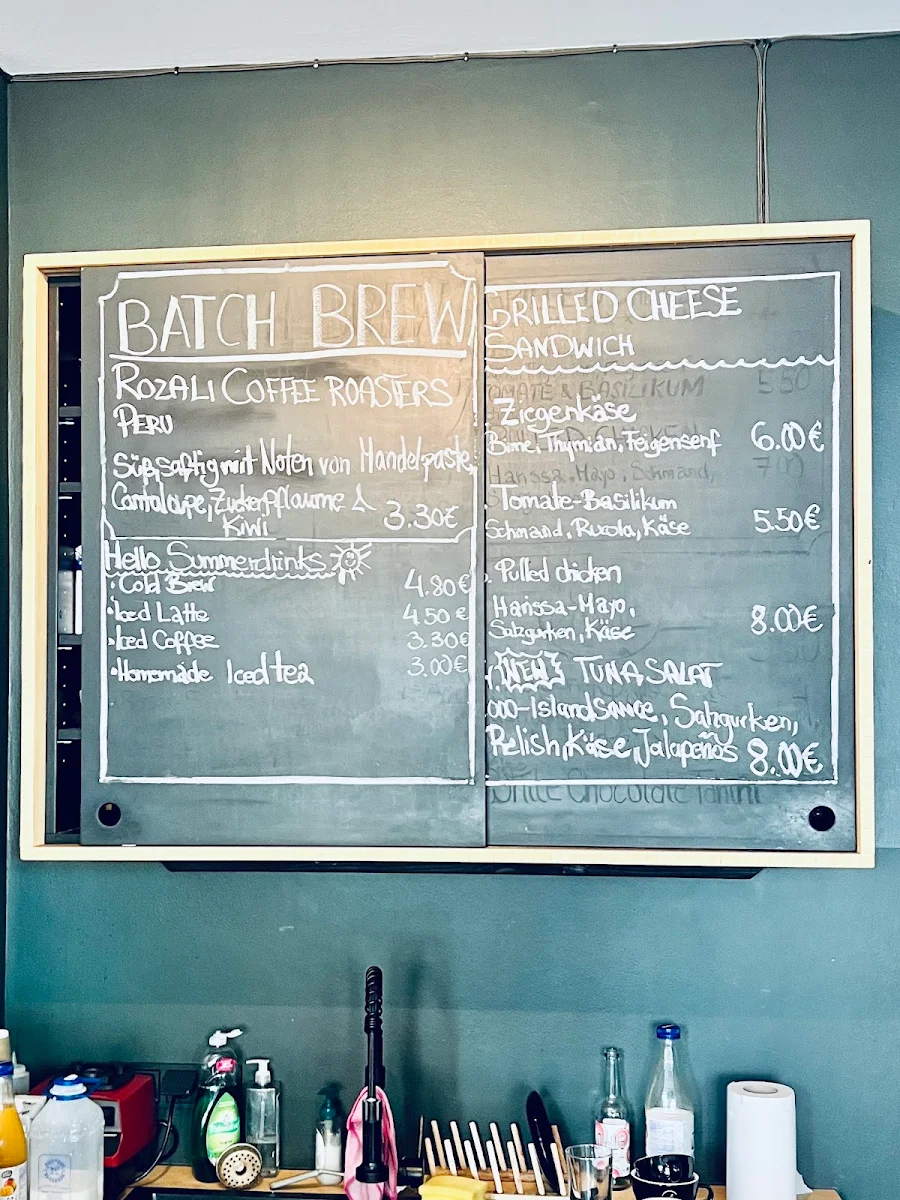 BATCH BREW
ROZALI COFFEE ROASTERS
PERU
Süß, saftig mit Noten von Mandelpaste,
Cantaloupe, Zuckerpflaume &
Kiwi 3.30€
Hello Summerdrinks
• Cold Brew 4.80€
• Iced Latte 4.50€
• Iced Coffee 3.30€
• Homemade Iced tea 3.00€
GRILLED CHEESE
SANDWICH
TOMATE & BASILIKUM 5.50
Ziegenkäse
Birne, Thymian, Feigensenf 6.00€
Harissa, Mayo, Schmand, 7.00
Tomate-Basilikum
Schmand, Rucola, Käse 5.50€
Pulled chicken
Harissa-Mayo,
Salzgurken, Käse 8.00€
NEW! TUNA SALAT
000-Island Sauce, Salzgurken,
Relish, Käse, Jalapeños 8.00€
Chocolate Panini